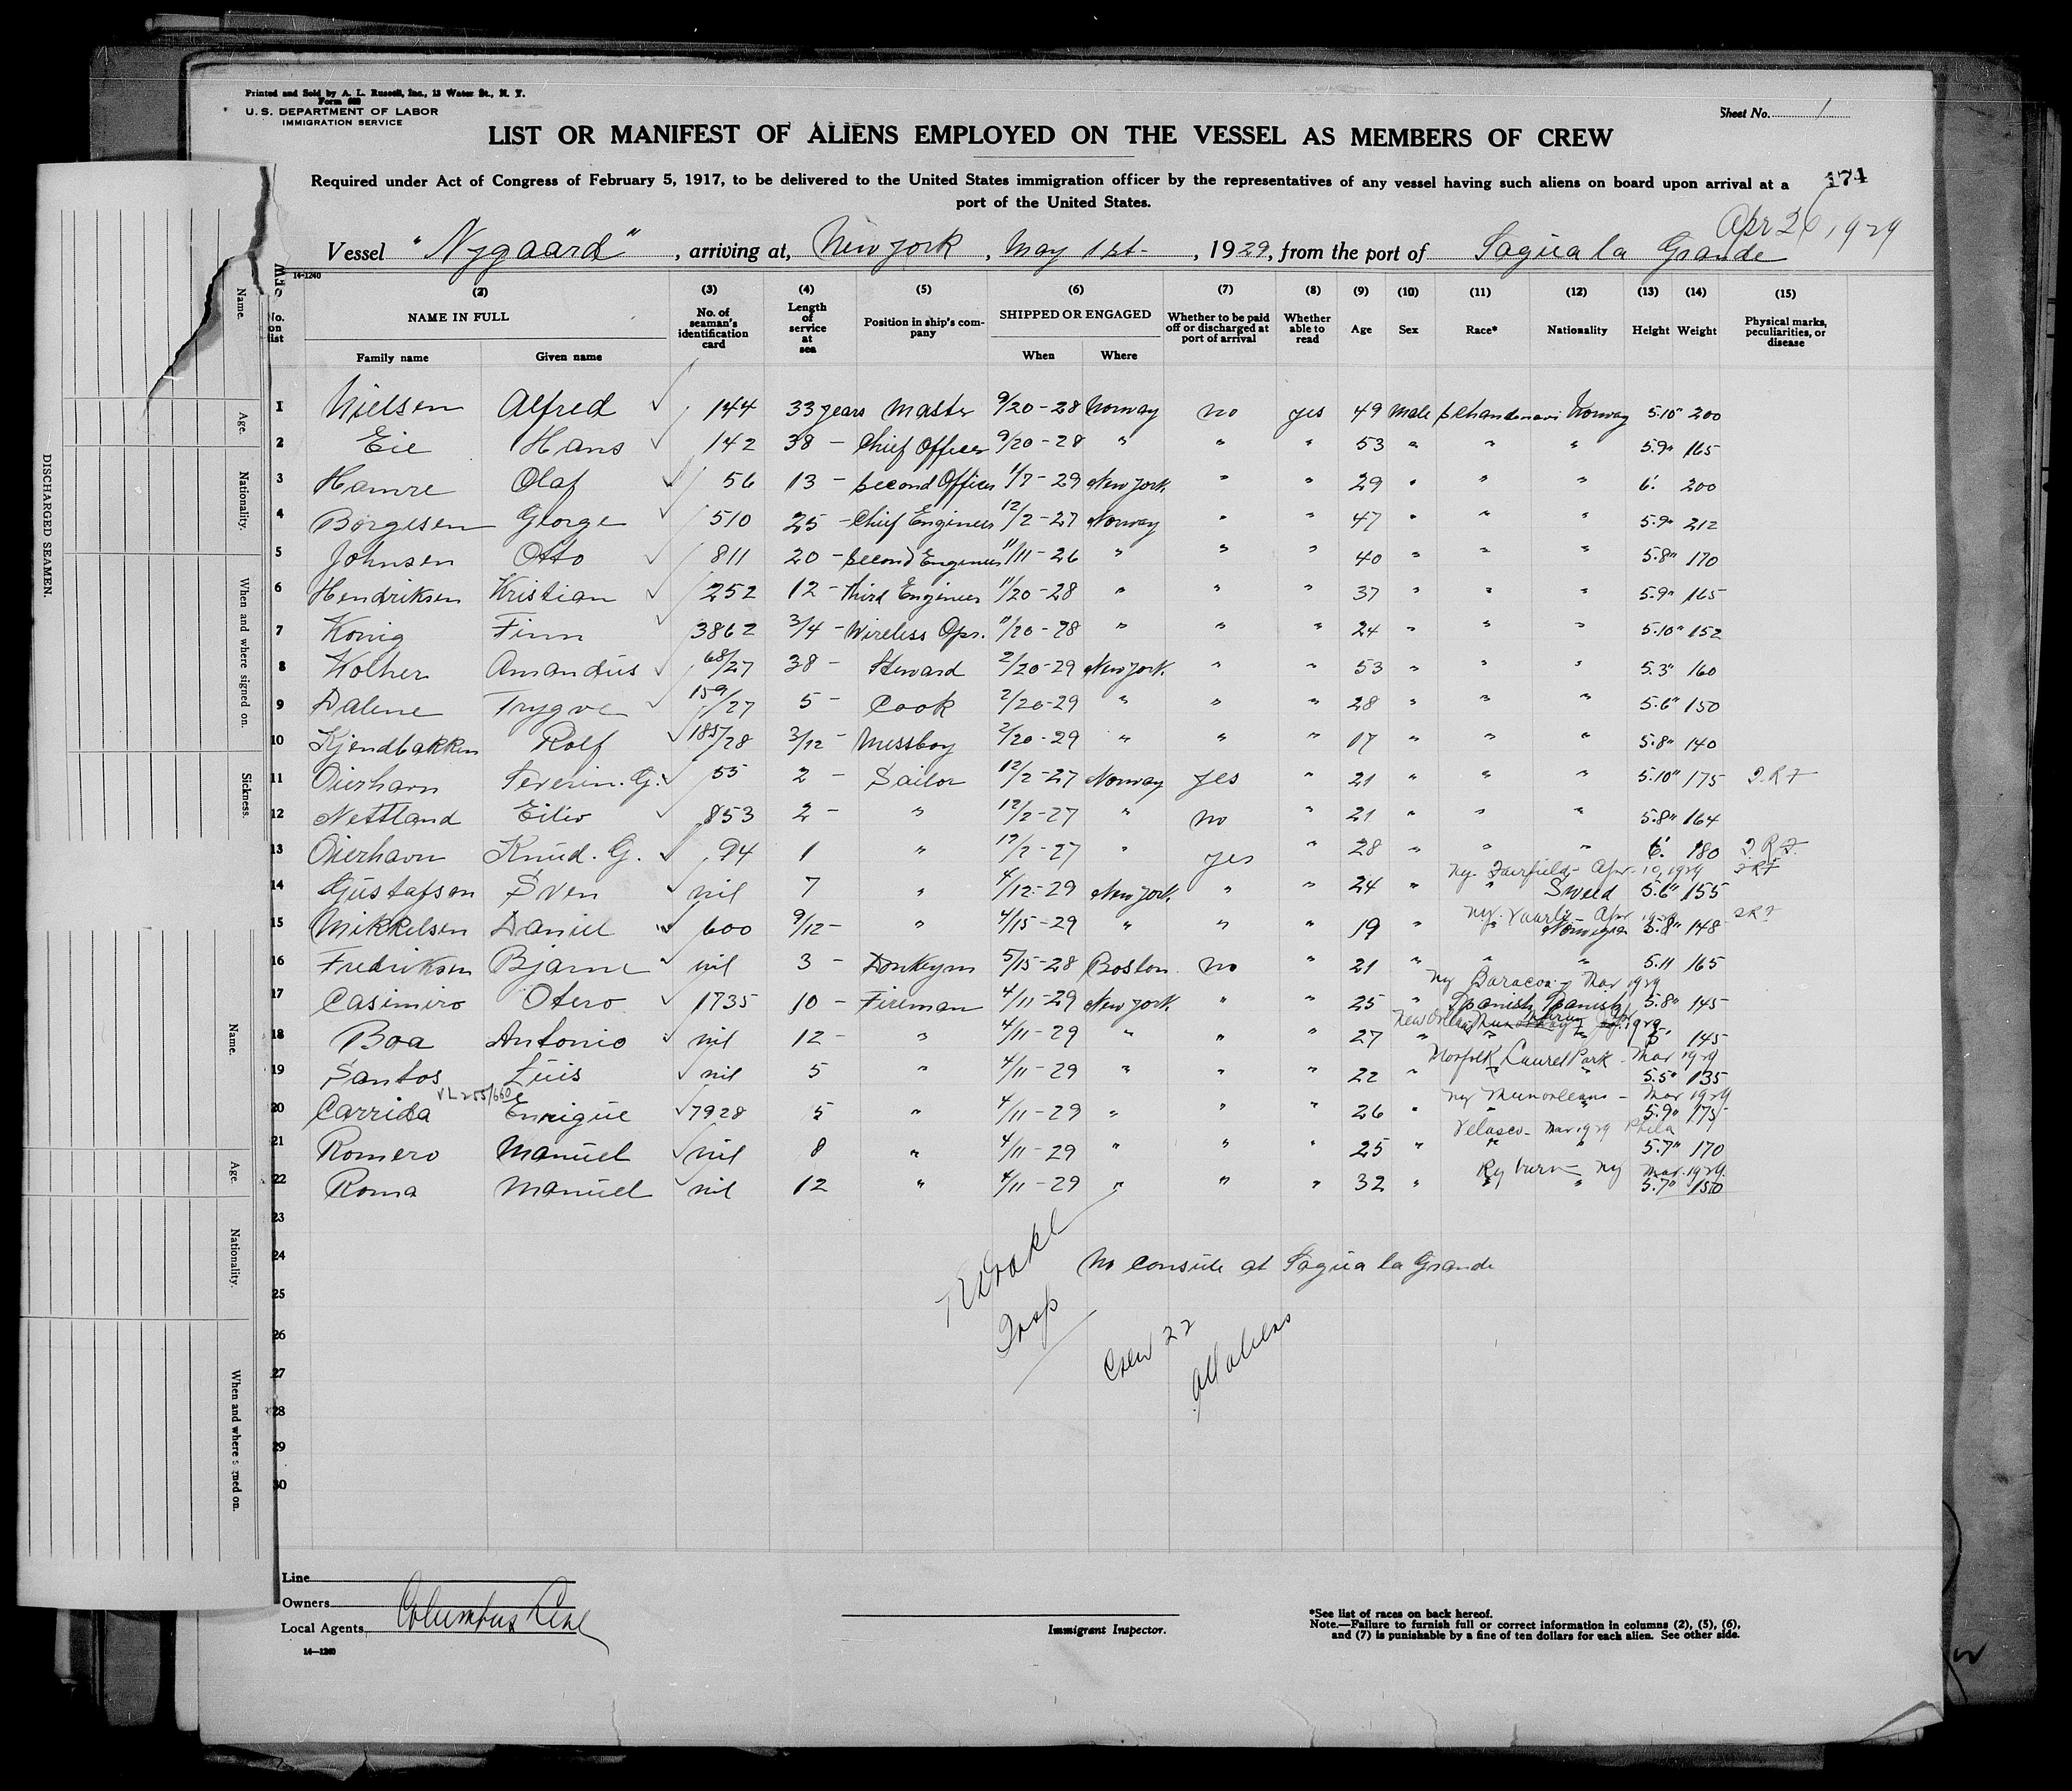 Printed and Sold by A. L. Russell, Inc., 13 Water St., N. Y.
Form 689
U. S. DEPARTMENT OF LABOR
IMMIGRATION SERVICE
Sheet No. 1
LIST OR MANIFEST OF ALIENS EMPLOYED ON THE VESSEL AS MEMBERS OF CREW
Required under Act of Congress of February 5, 1917, to be delivered to the United States immigration officer by the representatives of any vessel having such aliens on board upon arrival at a
port of the United States.
174
Apr 26, 1929
Vessel "Nygaard", arriving at, New york, May 1st, 1929, from the port of Sagua la Grande
14-1240
(2) (3) (4) (5) (6) (7) (8) (9) (10) (11) (12) (13) (14) (15)
No. on list NAME IN FULL Family name Given name No. of seaman's identification card Length of service at sea Position in ship's company SHIPPED OR ENGAGED When Where Whether to be paid off or discharged at port of arrival Whether able to read Age Sex Race* Nationality Height Weight Physical marks, peculiarities, or disease
1 Nielsen Alfred 144 33 years Master 9/20-28 Norway no yes 49 Male schandenavi Norway 5.10" 200
2 Eie Hans 142 38 - Chief Officer 9/20-28 " " " 53 " " " 5.9" 165
3 Hamre Olaf 56 13 - second Officer 1/7-29 New york " " 29 " " " 6'. 200
4 Borgesen George 510 25 - Chief Engineer 12/2-27 Norway " " 47 " " " 5.9" 212
5 Johnsen Otto 811 20 - second Engineer 11/11-26 " " " 40 " " " 5.8" 170
6 Hendriksen Kristian 252 12 - third Engineer 11/20-28 " " " 37 " " " 5.9" 165
7 Konig Finn 3862 3/4 - Wireless Opr. 11/20-28 " " " 24 " " " 5.10" 152
8 Wolher Amandus 68/27 38 - Steward 2/20-29 New york " " 53 " " " 5.3" 160
9 Dalene Trygve 159/27 5 - Cook 2/20-29 " " " 28 " " " 5.6" 150
10 Kjendbakken Rolf 185/28 3/12 - Messboy 2/20-29 " " " 17 " " " 5.8" 140
11 Oierhavn Severin. G. 55 2 - Sailor 12/2-27 Norway yes " 21 " " " 5.10" 175
12 Nettland Eiliv 853 2 - " 12/2-27 " no " 21 " " " 5.8" 164
13 Oierhavn Knud. G. 94 1 " 12/2-27 " yes " 28 " " " 6'. 180
ny Fairfield - Apr. 10, 1929
14 Gustafson Sven nil 7 " 4/12-29 New york " " 24 " " Sweed 5.6" 155
15 Mikkelsen Daniel 600 9/12 - " 4/15-29 " " " 19 " " Norwegia 5.8" 148
16 Fredriksen Bjarne nil 3 - Donkeym 5/15-28 Boston no " 21 " " 5.11 165
ny Baracoa - Mar 1929
17 Casimiro Otero 1735 10 - Fireman 4/11-29 New york " " 25 " Spanish Spanish 5.8" 145
18 Boa Antonio nil 12 - " 4/11-29 " " " 27 " 145
Norfolk Laurel Park - Mar 1929
19 Santos Luis nil 5 " 4/11-29 " " " 22 " " " 5.5" 135
VL 255/660
ny Munorleans - Mar 1929
20 Carrida Enrique 7928 5 " 4/11-29 " " " 26 " " " 5.9" 175
Velasco - Mar 1929 Phila
21 Romero Manuel nil 8 " 4/11-29 " " " 25 " " " 5.7" 170
ny Mar. 1929
22 Roma Manuel nil 12 " 4/11-29 " " " 32 " " " 5.7" 150
23
24
25
26
27
28
29
30
No consule at Sagua la Grande
Drake
Insp
Crew 22
All aliens
Line
Owners
Local Agents Columbus Line
14-1240
Immigrant Inspector.
*See list of races on back hereof.
Note.—Failure to furnish full or correct information in columns (2), (5), (6),
and (7) is punishable by a fine of ten dollars for each alien. See other side.
DISCHARGED SEAMEN.
Name.
Age.
Nationality.
When and where signed on.
Sickness.
Name.
Age.
Nationality.
When and where signed on.